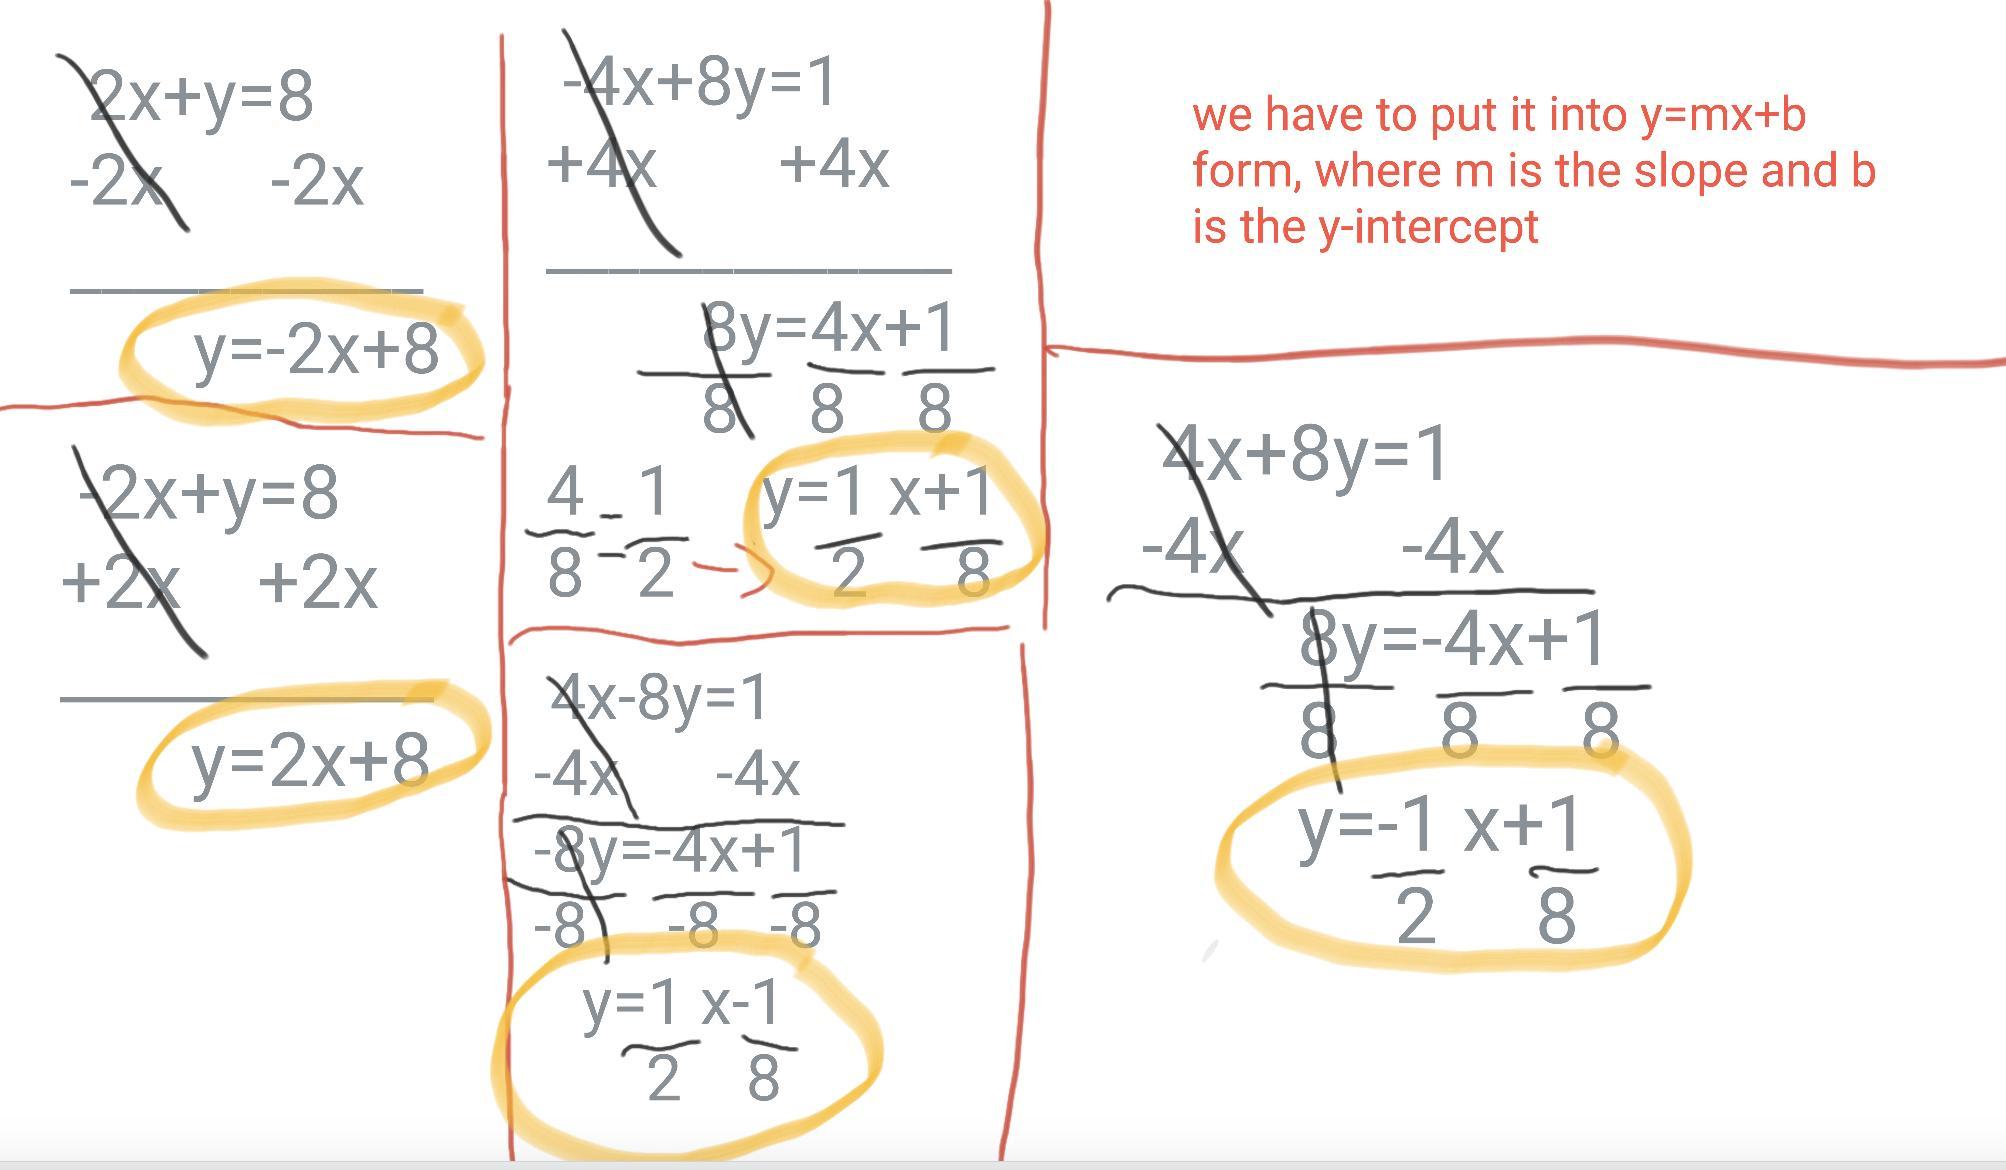 2x+y=8
-2x -2x
y=-2x+8
-2x+y=8
+2x +2x
y=2x+8
-4x+8y=1
+4x +4x
8y=4x+1
8 8 8
4 = 1
8 2
y=1 x+1
2 8
4x-8y=1
-4x -4x
-8y=-4x+1
-8 -8 -8
y=1 x-1
2 8
we have to put it into y=mx+b
form, where m is the slope and b
is the y-intercept
4x+8y=1
-4x -4x
8y=-4x+1
8 8 8
y=-1 x+1
2 8